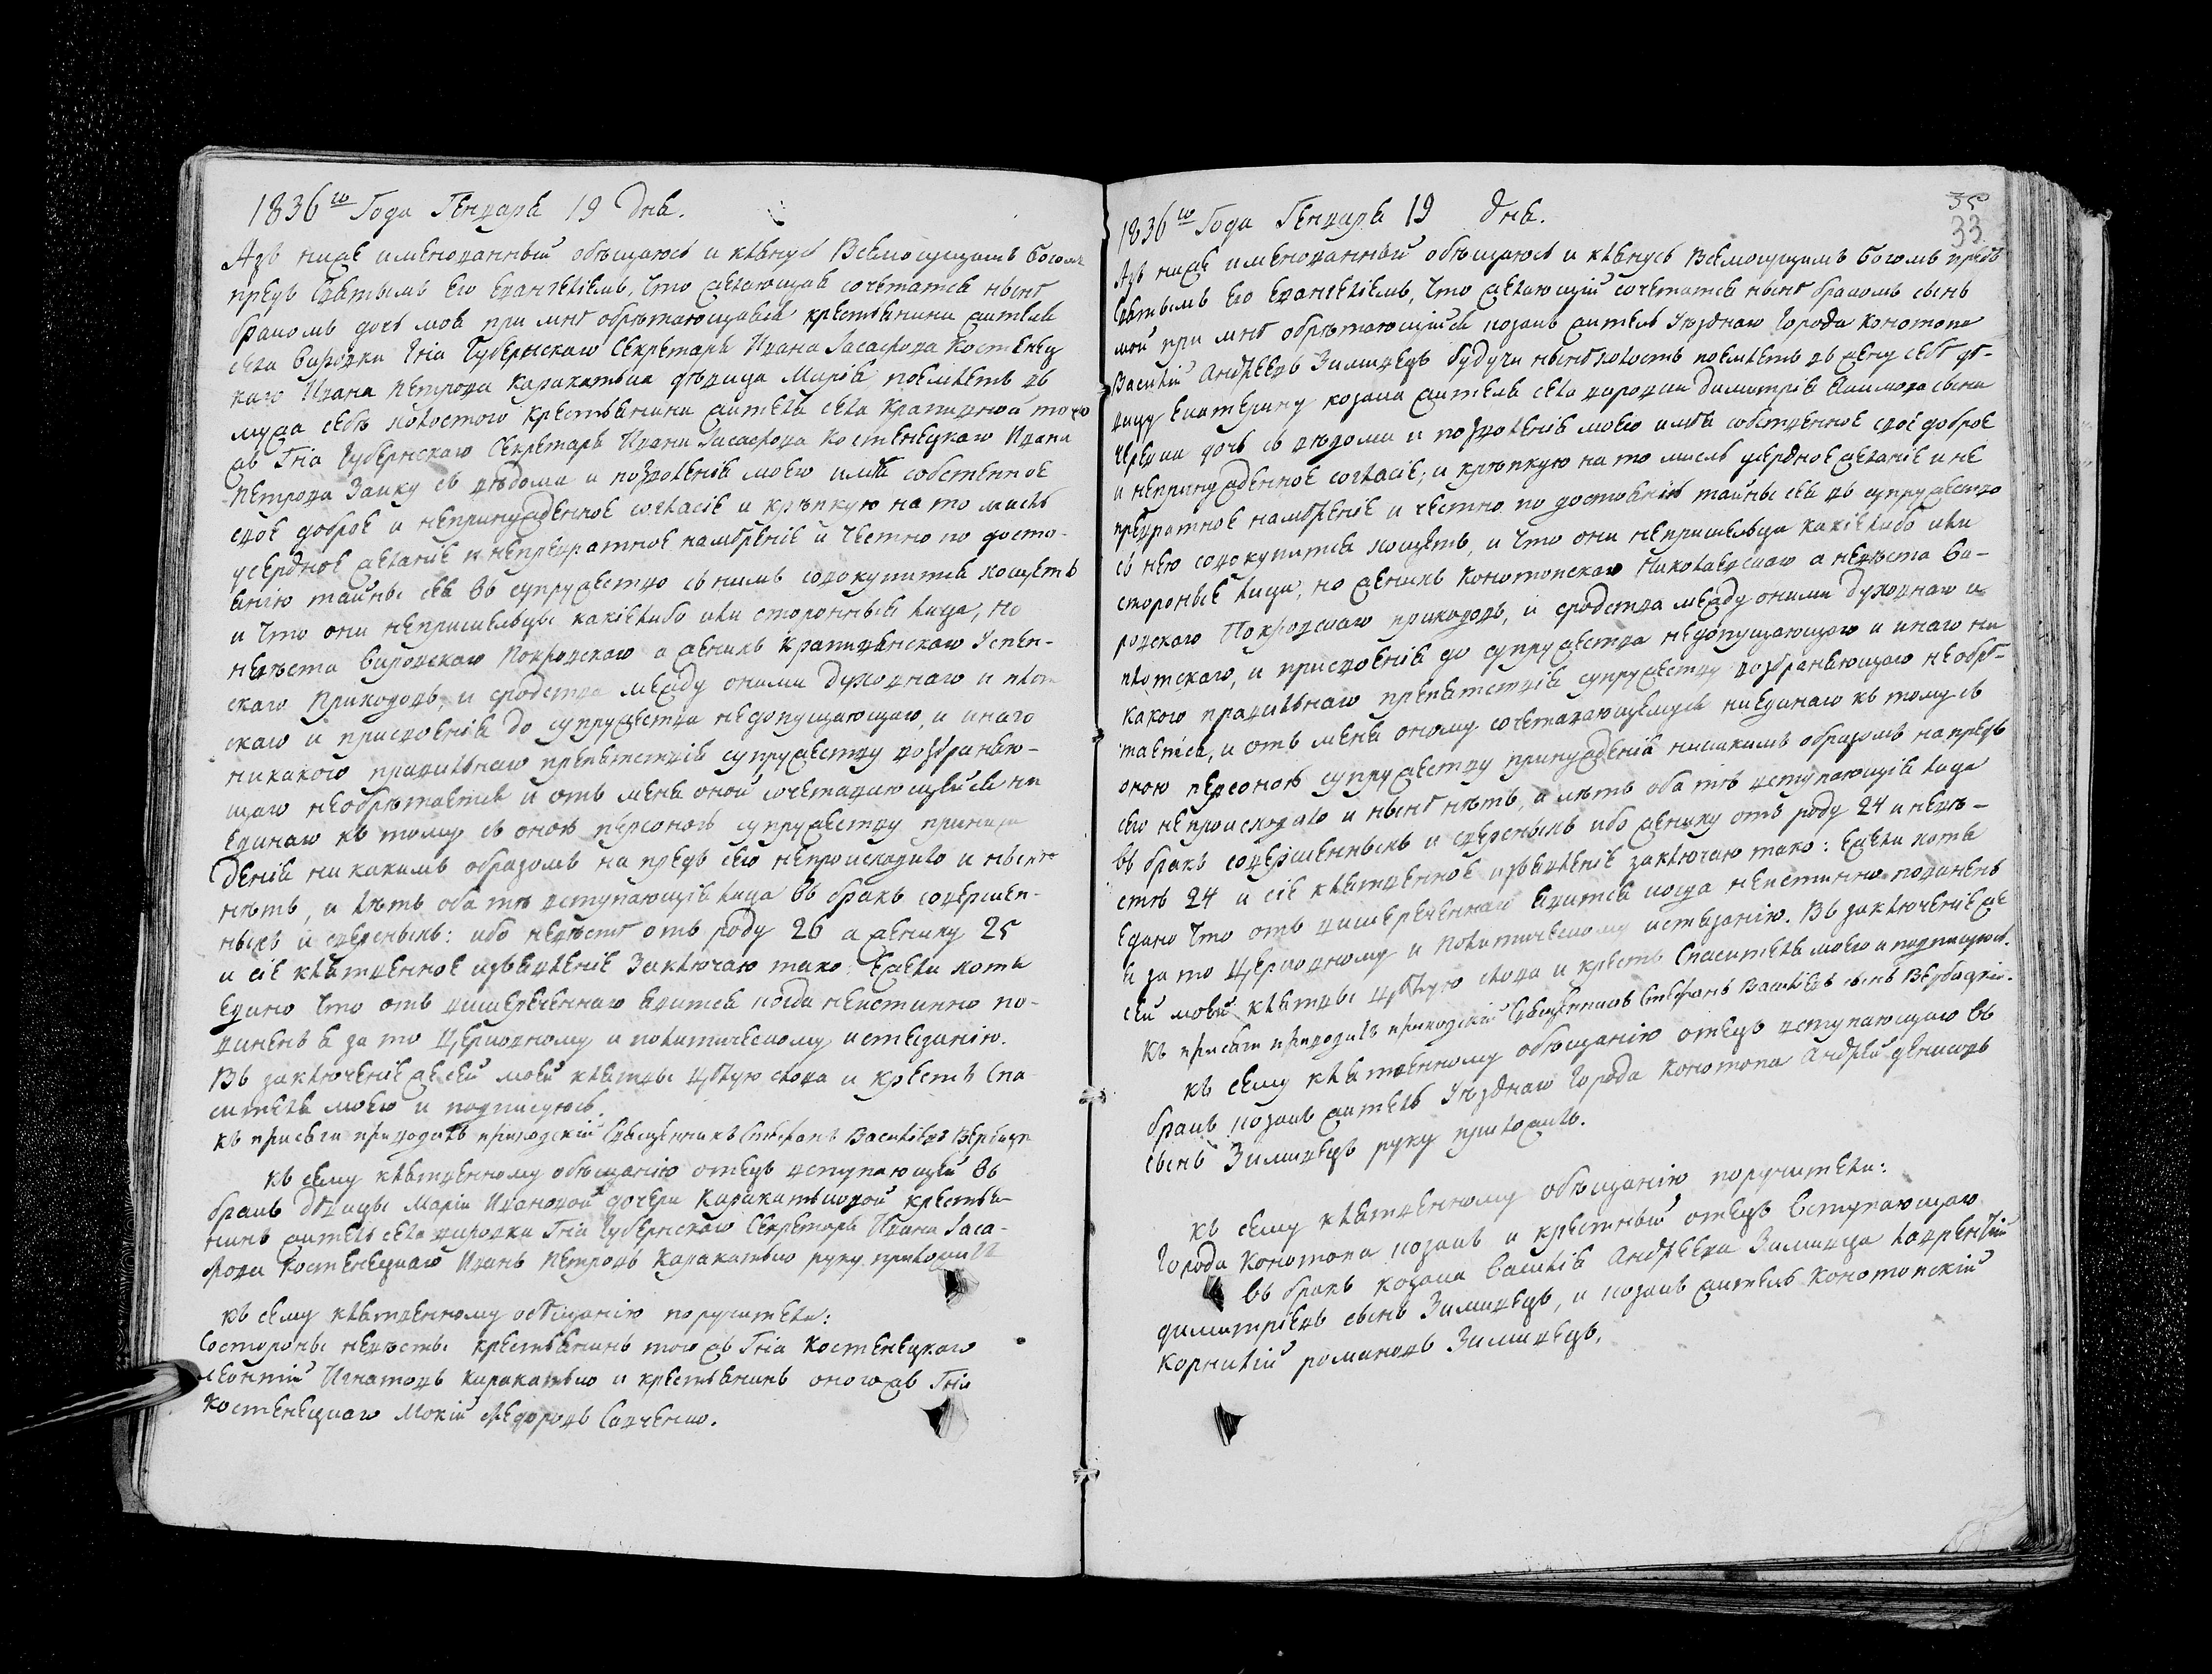 1836го Года Генваря 19 Дня.
Азъ ниже именованный обѣщаюсь и клянусь Всемогущимъ Богомъ
предъ Святымъ Его Евангелiемъ, что желающая сочетатся нынѣ
бракомъ дочь моя при мнѣ обрѣтающаяся крестьянина жителя
села Вировки Гна Губернскаго Секретаря Ивана Iасафова Костенец
каго Ивана Петрова Каракатьша дѣвица Марiя поемлетъ въ
мужа себѣ холостого крестьянина жителя села Крапивной того
жъ Гна Губернскаго Секретаря Ивана Iасафова Костенецкаго Ивана
Петрова Заику съ вѣдома и позволенiя моего имѣя собственное
свое доброе и непринужденное согласiе и крѣпкую на то мысль
усердное желанiе и непревратное намѣренiе и честно по досто-
янiю тайны сея въ супружество съ нимъ совокупится хощетъ
и что они непришельцы какiелибо или сторонныя лица, но
невѣста Вировскаго Покровскаго а женихъ Крапивянскаго Успен-
скаго Приходовъ, и сродства между оними духовнаго и плот
скаго и присвоенiя до супружества недопущающаго, и инаго
никакого правильнаго препятствiя супружеству возбраняю-
щаго необрѣтается и отъ меня оной сочетавающейся ни
единаго къ тому съ оною персоною супружеству принуж
денiя ни какимъ образомъ на предъ сего непроисходило и нынѣ
нѣтъ, а лѣтъ оба тѣ вступающiя лица въ бракъ совершен-
ныхъ и сверсныхъ: ибо невѣстѣ отъ роду 26 а жениху 25
и сiе клятвенное изъявленiе заключаю тако: Ежели хотя
едино что отъ вишереченнаго явится когда неистинно по-
виненъ я за то Церковному и политическому истезанiю.
Въ заключенiе же сей моей клятвы цѣлую слова и крестъ Спа
сителя моего и подписуюсь.
къ присяги приводилъ приходскiй Священникъ Стефанъ Васильевъ Вербицк
къ сему клятвенному обѣщанiю отецъ вступающей въ
бракъ дѣвицы Марiи Ивановой дочери Каракатьшовой крестья-
нинъ житель села вировки Гна Губернскаго Секретаря Ивана Iаса-
фова Костенецкаго Иванъ Петровъ Каракатьшо руку приложилъ
къ сему клятвенному обѣщанiю поручители:
Состороны невѣсты крестьянинъ тогожъ Гна Костенецкаго
Леонтiй Игнатовъ Каракатьшо и крестьянинъ оногожъ Гна
Костенецкаго Мокiй Федоровъ Савченко.
35
33
1836го Года Генваря 19 дня.
Азъ ниже именованный обѣщаюсь и клянусь Всемогущимъ Богомъ предъ
Святымъ Его Евангелiемъ, что желающiй сочетатся нынѣ бракомъ сынъ
мой при мнѣ обрѣтающiйся козакъ житель Уѣзднаго Города Конотопа
Василiй Андреевъ Зимивецъ будучи нынѣ холостъ поемлетъ въ жену себѣ дѣ-
вицу Екатерину козака жителя села вировки Димитрiя Екимова сына
дочь съ вѣдома и позволенiя моего имѣя собственное свое доброе
и непринужденное согласiе; и крѣпкую на то мысль усердное желанiе и не
превратное намѣренiе и честно по достоянiю тайны сея въ супружество
съ нею совокупится хощетъ, и что они непришельцы какiелибо или
стороныя лица, но женихъ Конотопскаго Николаевскаго а невѣста Ви-
ровскаго Покровскаго приходовъ, и сродства между оними духовнаго и
плотскаго, и присвоенiя до супружества недопущающаго и инаго ни
какого правильнаго препятствiя супружеству возбраняющаго необрѣ-
тается, и отъ меня оному сочетавающемуся ниединаго къ тому съ
оною персоною супружеству принужденiя никакимъ образомъ напредъ
сего непроисходило и нынѣ нѣтъ, а лѣтъ оба тѣ вступающiя лица
въ бракъ совершенныхъ и сверсныхъ ибо жениху отъ роду 24 и невѣ-
стѣ 24 и сiе клятвенное изъявленiе заключаю тако: ежели хотя
едино что отъ вишереченнаго явится когда неистинно повиненъ
я за то Церковному и политическому истезанiю. Въ заключенiе же
сей моей клятвы цѣлую слова и крестъ Спасителя моего и подписуюсь.
къ присяги приводилъ приходскiй Священникъ Стефанъ Васильевъ сынъ Вербицкiй.
къ сему клятвенному обѣщанiю отецъ вступающаго въ
бракъ козакъ житель Уѣзднаго Города Конотопа Андрей денисовъ
сынъ Зимивецъ руку приложилъ.
къ сему клятвенному обѣщанiю поручители:
Города Конотопа козакъ и крестный отецъ вступающаго
въ бракъ козака Василiя Андреева Зимивца Лаврентiй
димитрiевъ сынъ Зимивецъ, и козакъ житель Конотопскiй
Корнилiй романовъ Зимивецъ.